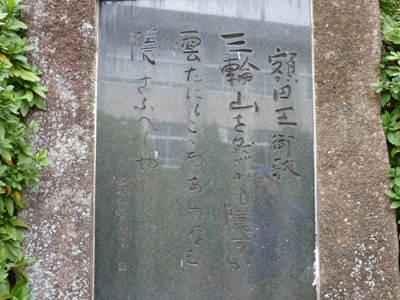 額田王御歌
三輪山を然かも隠すか
雲だにもこころあらなむ
隠さふべしや